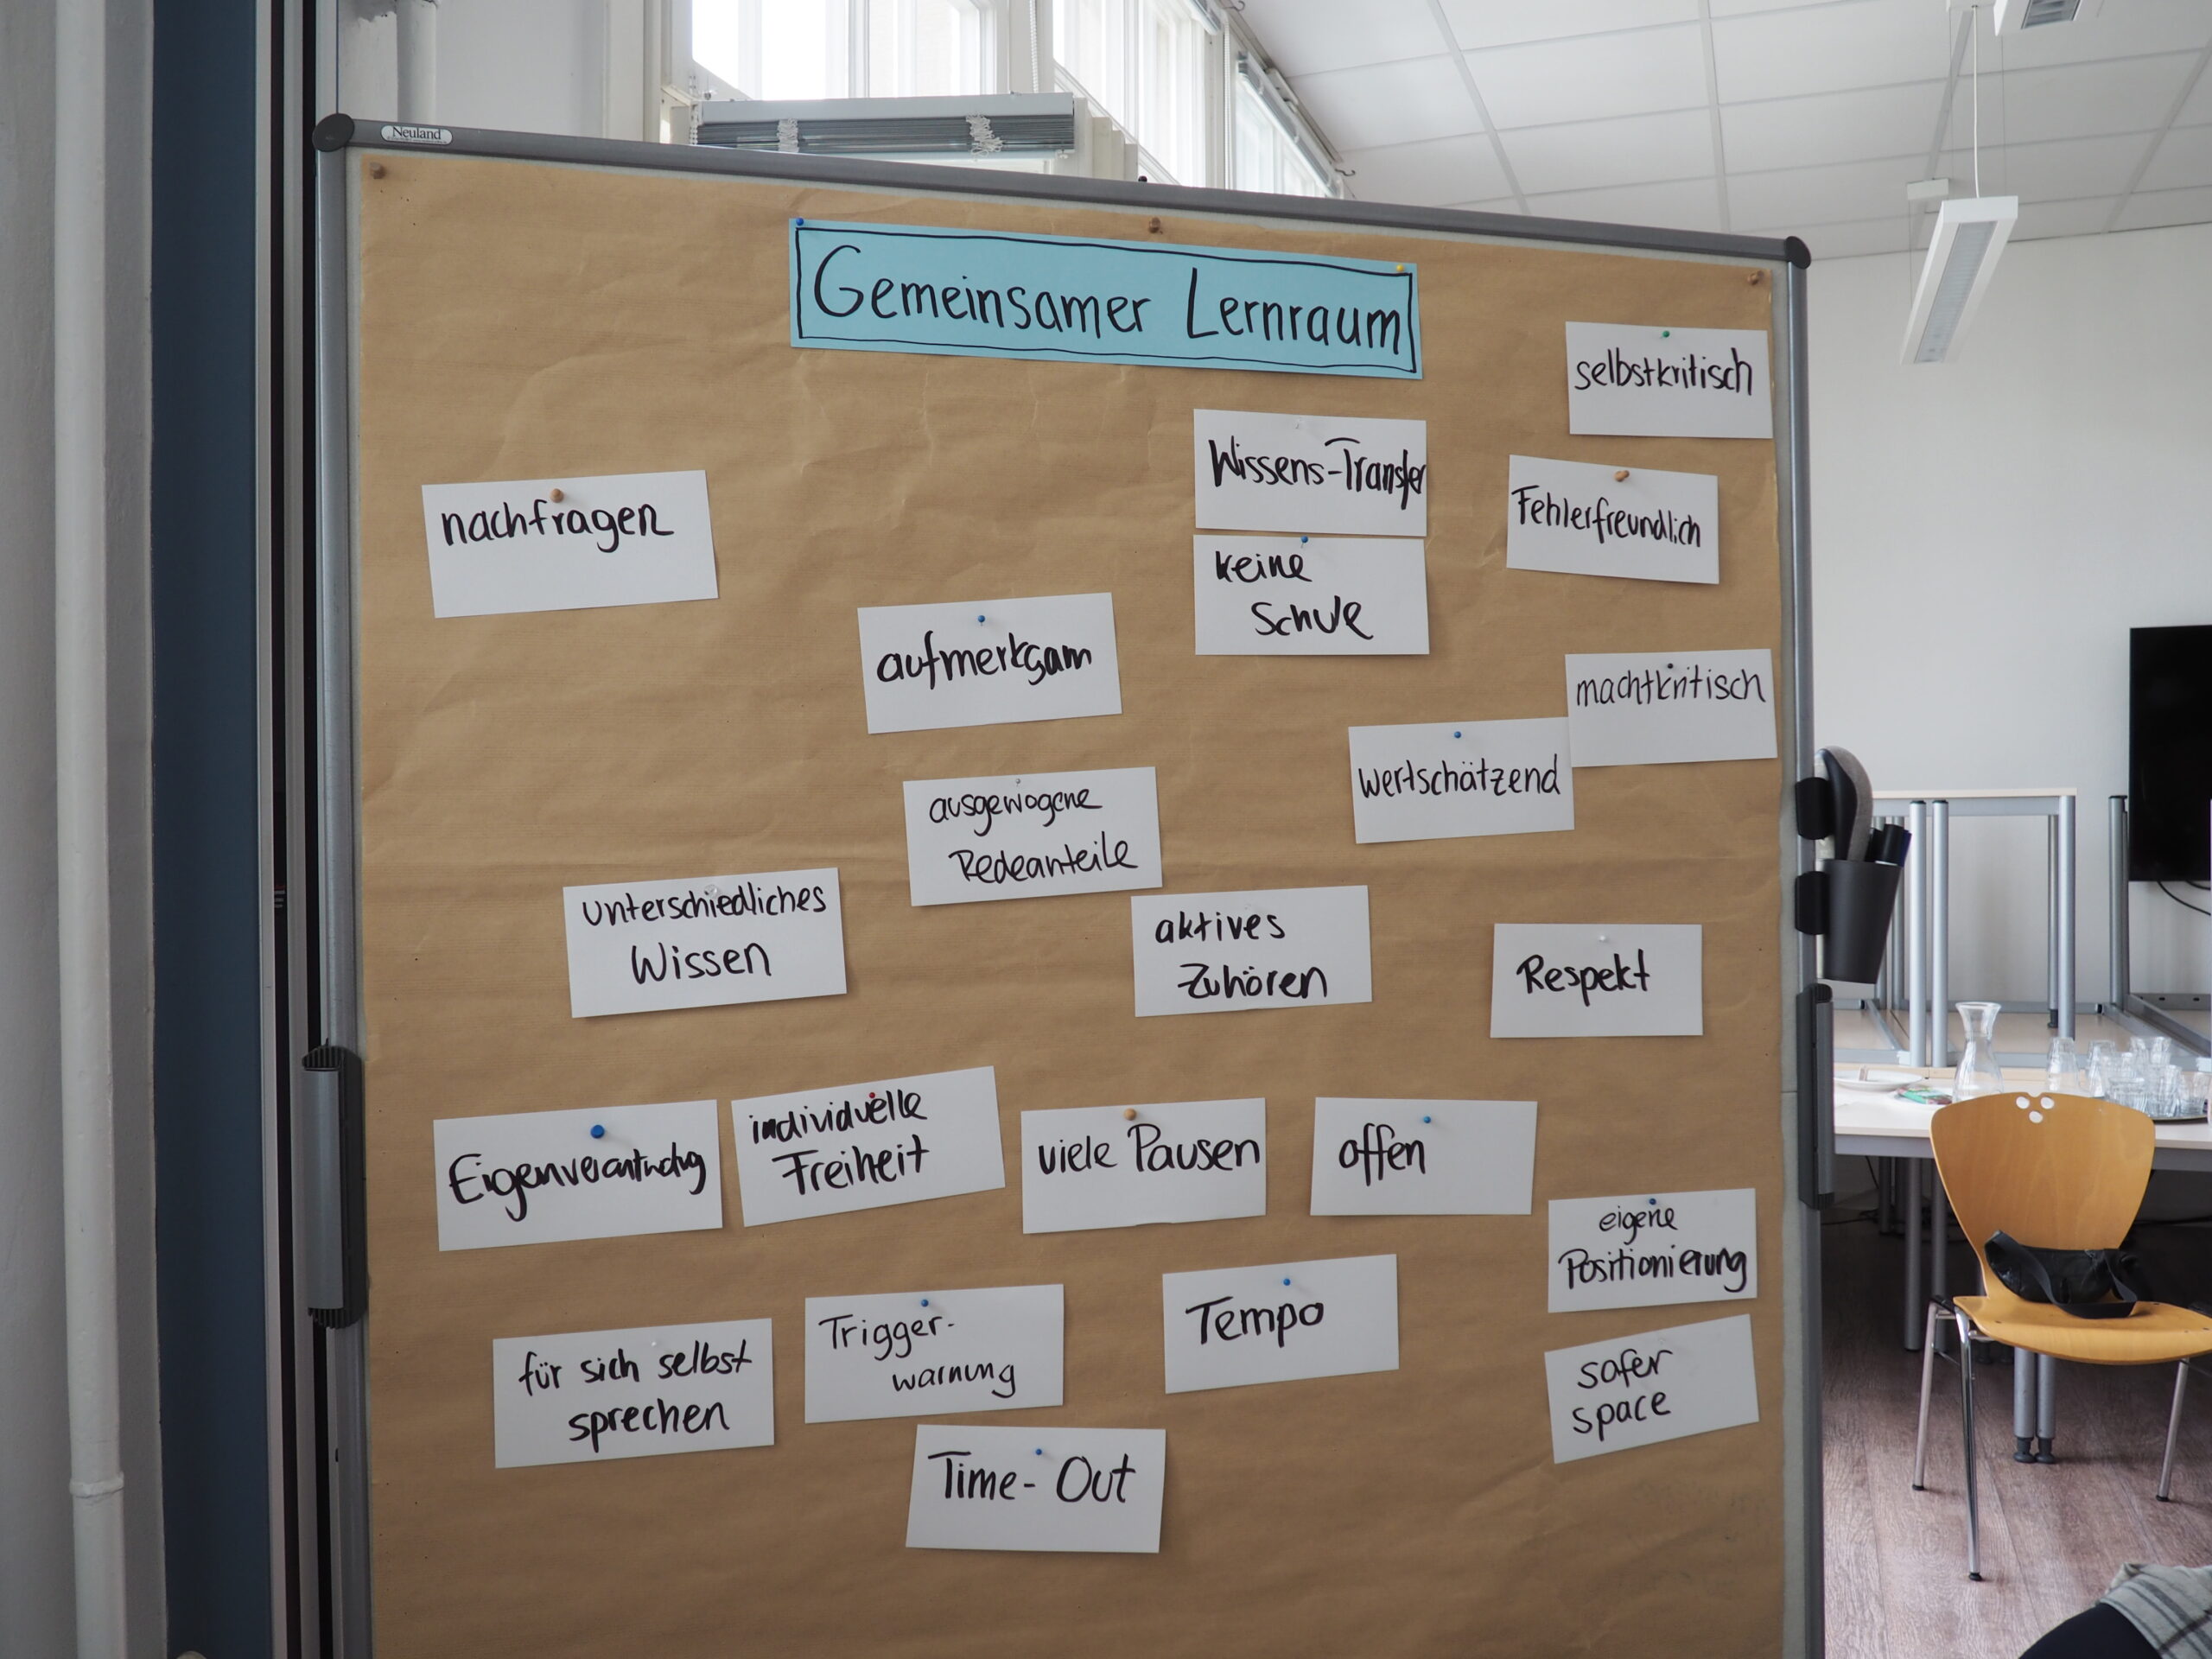 Neuland
Gemeinsamer Lernraum
selbstkritisch
Wissens-Transfer
Fehlerfreundlich
nachfragen
keine
Schule
aufmerksam
machtkritisch
wertschätzend
ausgewogene
Redeanteile
unterschiedliches
Wissen
aktives
Zuhören
Respekt
Eigenverantwortung
individuelle
Freiheit
viele Pausen
offen
eigene
Positionierung
für sich selbst
sprechen
Trigger-
warnung
Tempo
safer
space
Time-Out